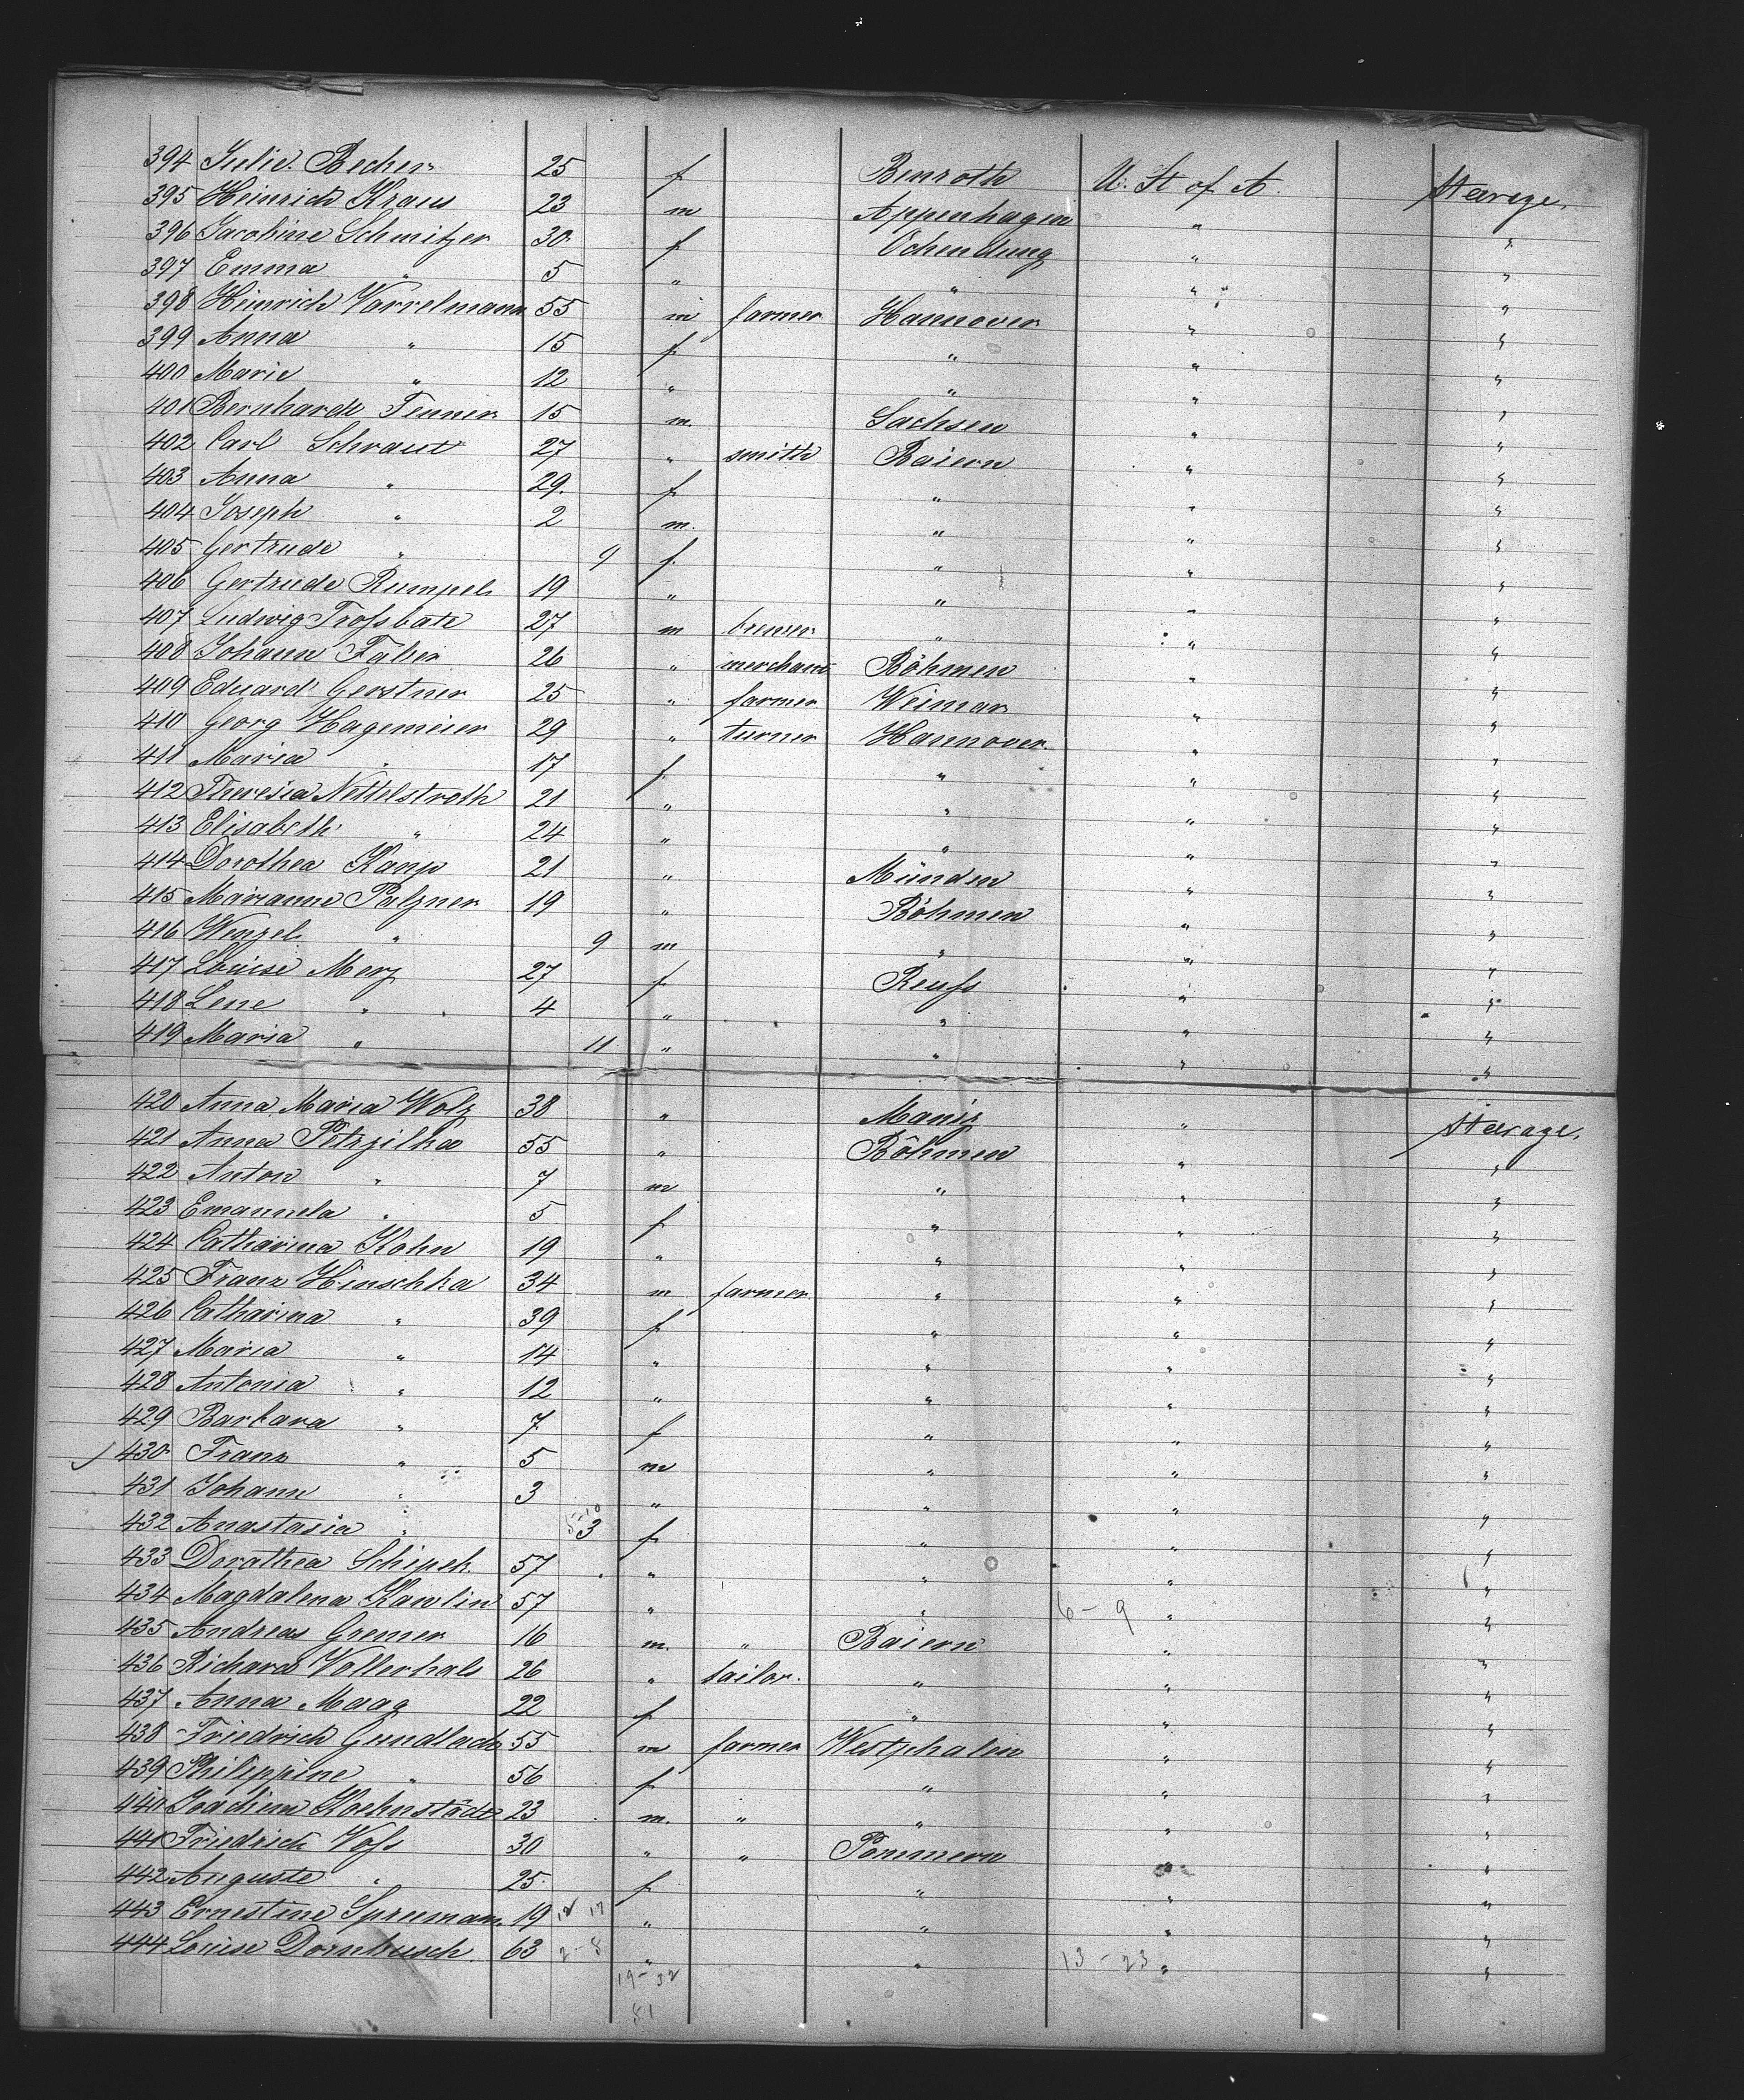 394 Julie Becher 25 f Benroth U. St of A. Steerage.
395 Heinrich Kraus 23 m Appenhagen " "
396 Jacobine Schmitzer 30 f Ochendung " "
397 Emma " 5 " " " "
398 Heinrich Varrelmann 55 m farmer Hannover " "
399 Anna " 15 f " " "
400 Marie " 12 " " " "
401 Bernhardt Fenner 15 m. Sachsen " "
402 Carl Schraut 27 " smith Baiern " "
403 Anna " 29. f " " "
404 Joseph " 2 m. " " "
405 Gertrude " 9 f. " " "
406 Gertrude Rumpel 19 " " " "
407 Ludwig Trossbate 27 m brewer " " "
408 Johann Faber 26 " merchant Böhmen " "
409 Eduard Gerstner 25 " farmer Weimar " "
410 Georg Hagemeier 29 " turner Hannover. " "
411 Maria " 17 f " " "
412 Theresia Nettelstroth 21 " " " "
413 Elisabeth " 24 " " " "
414 Dorothea Kamp 21 " Münden " "
415 Marianne Palzner 19 " Böhmen " "
416 Wenzel " 9 m " " "
417 Louise Merz 27 f Reuss " "
418 Lene " 4 " " " "
419 Maria " 11 " " " "
420 Anna Maria Wolz 38 " Maniz " Steerage.
421 Anna Petrzilka 55 " Böhmen " "
422 Anton " 7 m " " "
423 Emanuela " 5 f " " "
424 Catharina Kohn 19 " " " "
425 Franz Hinschka 34 m farmer. " " "
426 Catharina " 39 f " " "
427 Maria " 14 " " " "
428 Antonia " 12 " " " "
429 Barbara " 7 f " " "
430 Franz " 5 m " " "
431 Johann " 3 " " " "
432 Anastasia " 3 f " " "
433 Dorathea Schipek 57 " " " "
434 Magdalena Kawlin 57 " " 6-9 " "
435 Andreas Gremer 16 m. " Baiern " "
436 Richard Vollerhals 26 " tailor. " " "
437 Anna Maag 22 f " " "
438 Friedrich Gundlach 55 m farmer Westphalen " "
439 Philippine " 56 f " " "
440 Joachim Koehnstädt 23 m. " " " "
441 Friedrich Voss 30 " " Pommern " "
442 Auguste " 25 f " " "
443 Ernestine Spreemann 19 12 17 " " " "
444 Louise Dornbusch. 63 2-8 " " 13-23 " "
19-32
81